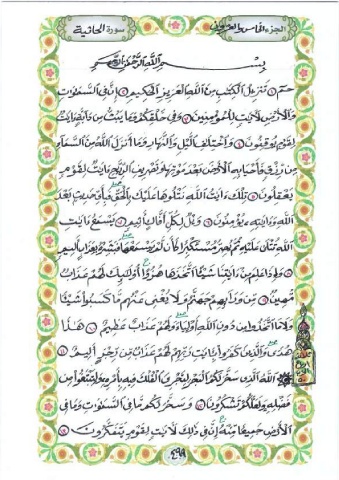 الجزء الخامس والعشرون
سورة الجاثية
بسم الله الرحمن الرحيم
حم ۝ تنزيل الكتب من الله العزيز الحكيم ۝ إن في السموات
والأرض لآيت للمؤمنين ۝ وفي خلقكم وما يبث من دابة ءايت
لقوم يوقنون ۝ واختلف الليل والنهار وما أنزل الله من السماء
من رزق فأحيا به الأرض بعد موتها وتصريف الريح ءايت لقوم
يعقلون ۝ تلك ءايت الله نتلوها عليك بالحق فبأي حديث بعد
الله وءايته يؤمنون ۝ ويل لكل أفاك أثيم ۝ يسمع ءايت
الله تتلى عليه ثم يصر مستكبرا كأن لم يسمعها فبشره بعذاب أليم
۝ وإذا علم من ءايتنا شيئا اتخذها هزوا أولئك لهم عذاب
مهين ۝ من ورائهم جهنم ولا يغني عنهم ما كسبوا شيئا
ولا ما اتخذوا من دون الله أولياء ولهم عذاب عظيم ۝ هذا
هدى والذين كفروا بءايت ربهم لهم عذاب من رجز أليم ۝
الله الذي سخر لكم البحر لتجري الفلك فيه بأمره ولتبتغوا من
فضله ولعلكم تشكرون ۝ وسخر لكم ما في السموات وما في
الأرض جميعا منه إن في ذلك لآيت لقوم يتفكرون ۝
٤٩٩